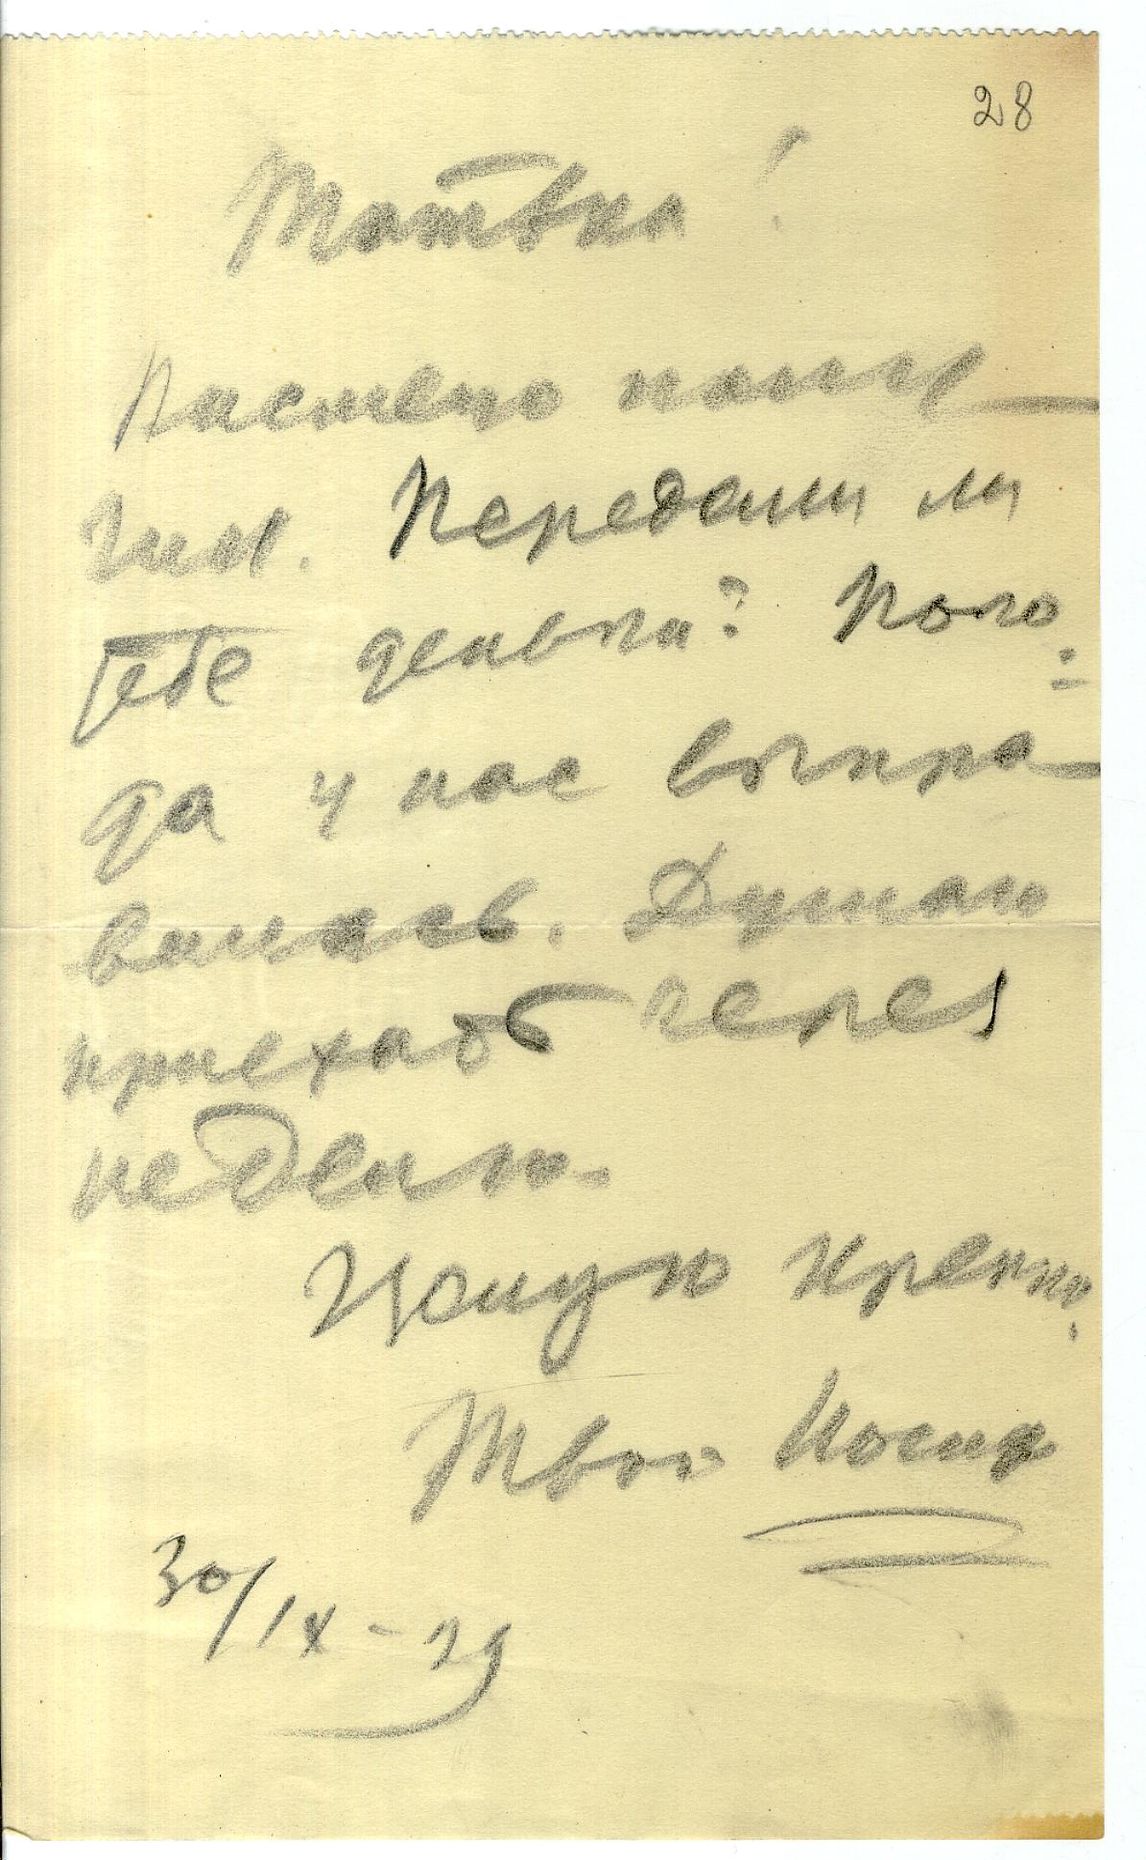 28
Татька!
Письмо полу-
чил. Передали ли
тебе деньги? Пого=
да у нас выпра-
вилась. Думаю
приехать через
неделю.
Целую крепко.
Твой Иосиф
30/IX-29